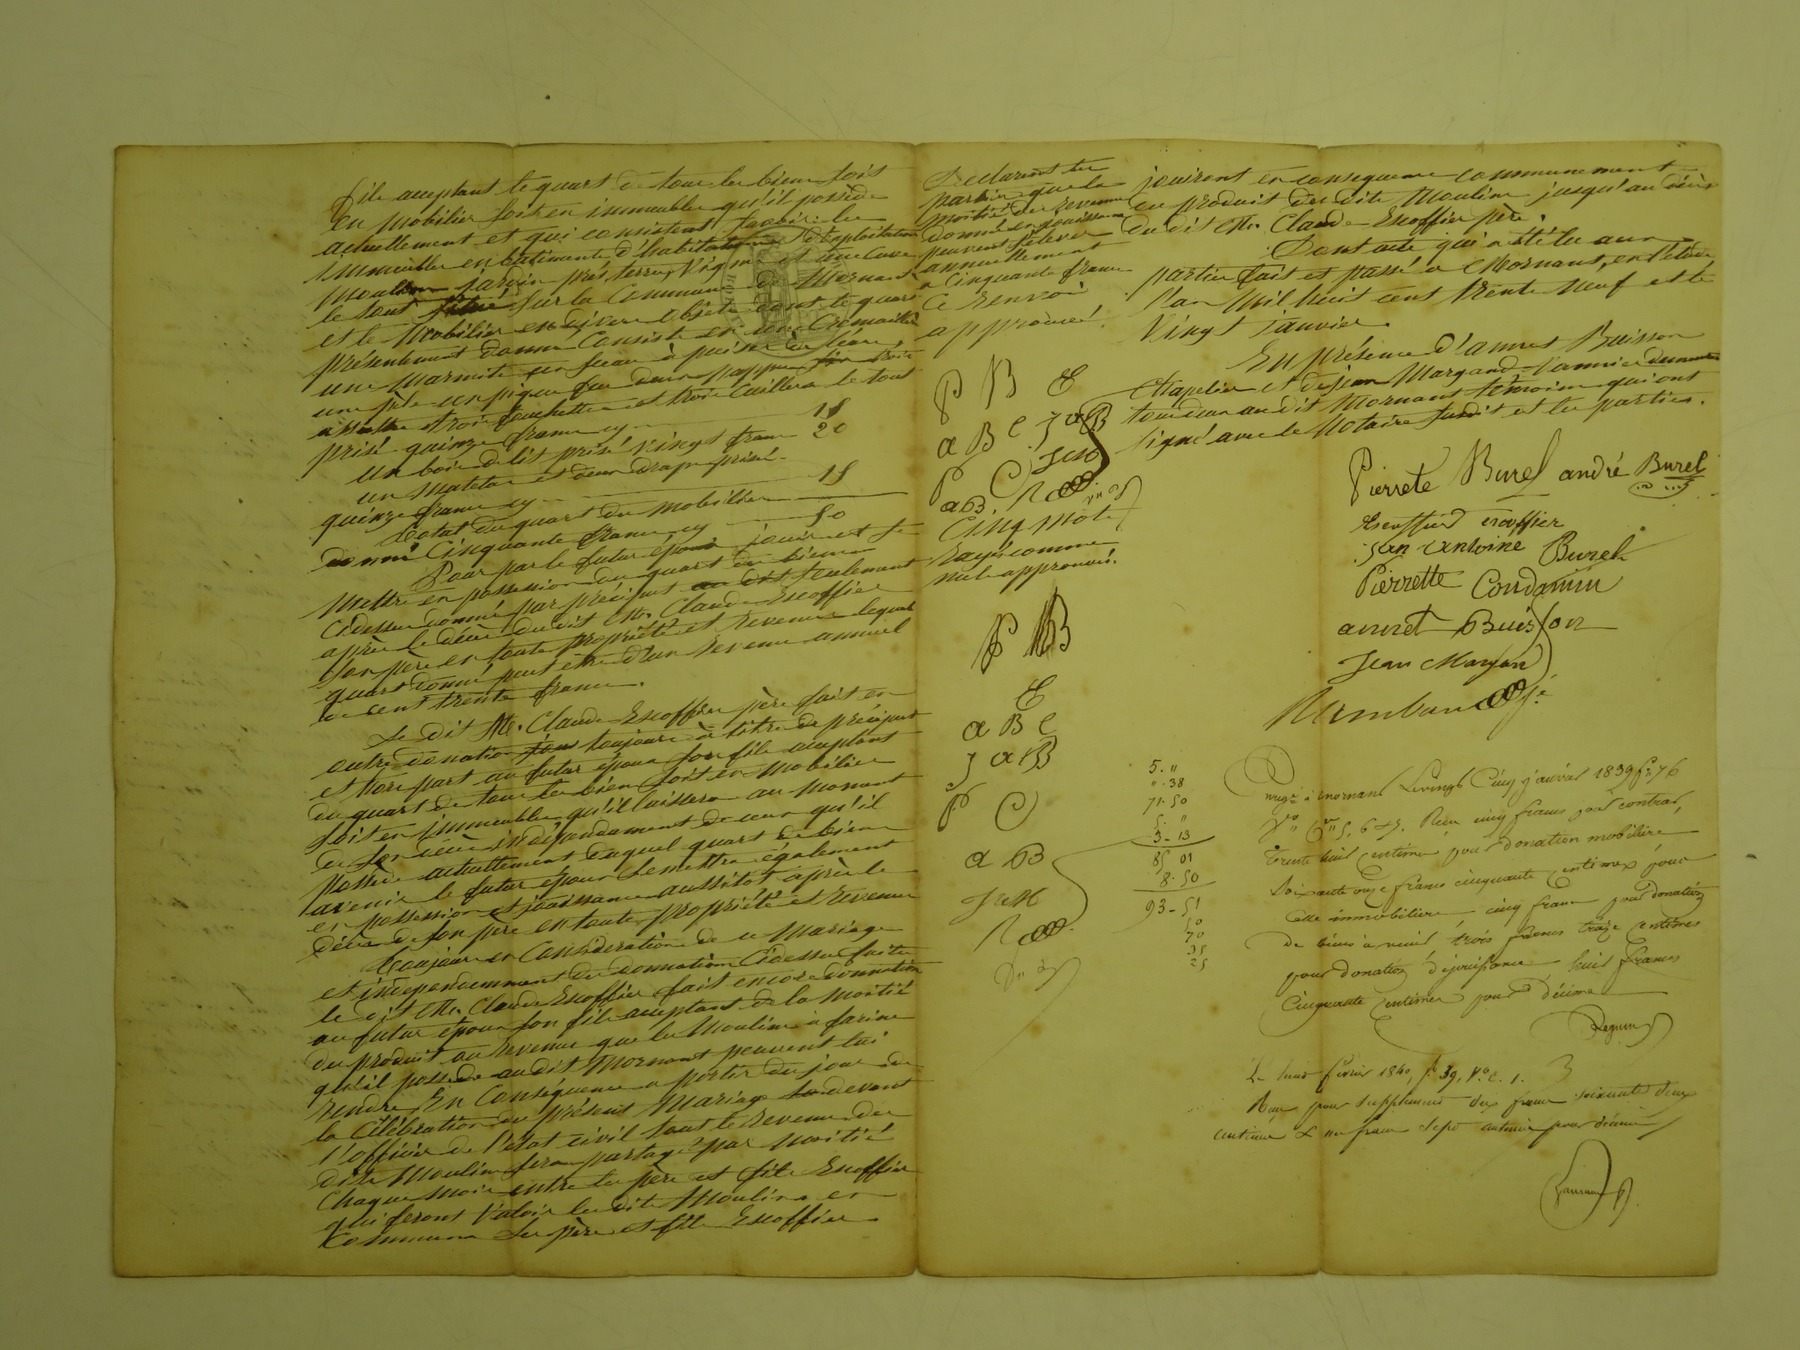 fils acceptant le quart de tous les biens soit
en mobilier soit en immeubles qu'il possède
actuellement et qui consistent savoir les
immeubles en batiments d'habitation et d'exploitation
moulins jardin prés terres vignes et
le tout situé sur la Commune de Mornant
et le mobilier en divers objets dont le quart
présentement donné Consiste en une Cremaillère
une marmite un seau à puiser de l'eau,
une pèle
assiettes trois fourchettes et trois Cuillers le tout
prisé quinze francs cy 15
un bois de lit prisé vingt francs 20
un matelas et deux draps prisé
quinze francs cy 15
Total du quart du mobilier
donné Cinquante francs, cy 50
Pour par le futur époux jouir et se
mettre en possession du quart des biens
Cidessus donné par préciput seulement
après le décès du dit Me. Claude Escoffier
son père en toute propriété et revenu lequel
quart donné peut être d'un revenu annuel
de cent trente francs.
Le dit Me. Claude Escoffier père fait en
outre donation toujours à titre de préciput
et hors part au futur époux son fils acceptant
du quart de tous les biens soit en mobilier
soit en immeubles qu'il laissera au moment
de son décès indépendamment de ceux qu'il
possède actuellement duquel quart de biens
avenir le futur époux se mettra également
en possession et jouissance aussitôt après le
décès de son père en toute propriété et revenu
Toujours en Considération de ce mariage
et indépendamment des donnations Cidessus faites
le dit Me. Claude Escoffier fait encore donnation
au futur époux son fils acceptant de la moitié
du produit au revenu que les Moulins à farine
qu'il possède au dit Mornant peuvent lui
rendre En Conséquence a partir du jour de
la Célébration du présent mariage devant
l'officier de l'état Civil tout le revenu des
dits Moulins sera partagé par moitié
Chaque mois entre les père et fils Escoffier
qui feront valoir les dits Moulins en
Commun les père et fils Escoffier
Declarent les
parties que la
moitié des revenus
donnés en jouissance
peuvent s'élever
annuellement
a Cinquante francs
Ce renvoi
approuvé.
P B E
a B C J a B
P C J M
a B. R
Cinq mots
rayés comme
nuls approuvés.
P B
E
a B C
J a B
P C
a B
J M
R
jouiront en consequence communement
du produit des dits Moulins jusqu'au décès
du dit Me. Claude Escoffier père.
Dont acte qui a été lu aux
parties fait et passé a Mornant, en l'étude,
l'an mil huit cent trente neuf et le
vingt janvier.
En présence d'annet Buisson
Chapelier et de jean Margand Vannier demeurant
tous deux au dit Mornant témoins qui ont
signé avec le Notaire susdit et les parties.
Pierrete Burel andré Burel
Escoffier escoffier
jean antoine Burel
Pierrette Condamin
annet Buisson
Jean Margand
5. "
". 38
71. 50
5. "
3 - 13
85 01
8. 50
93 - 51
50
70
35
25
Enregé à mornant le vingt Cinq janvier 1839 fo 76
Reçu cinq francs pour contrat,
trente huit centimes pour donation mobilière
soixante onze francs cinquante centimes pour
celle immobilière cinq francs pour donation
de biens à venir, trois francs treize centimes
pour donation de jouissance huit francs
Cinquante centimes pour décime
Le huit février 1840, fo 39, Vo c. 1.
Reçu pour supplément dix francs soixante deux
centimes & un franc sept centimes pour décime